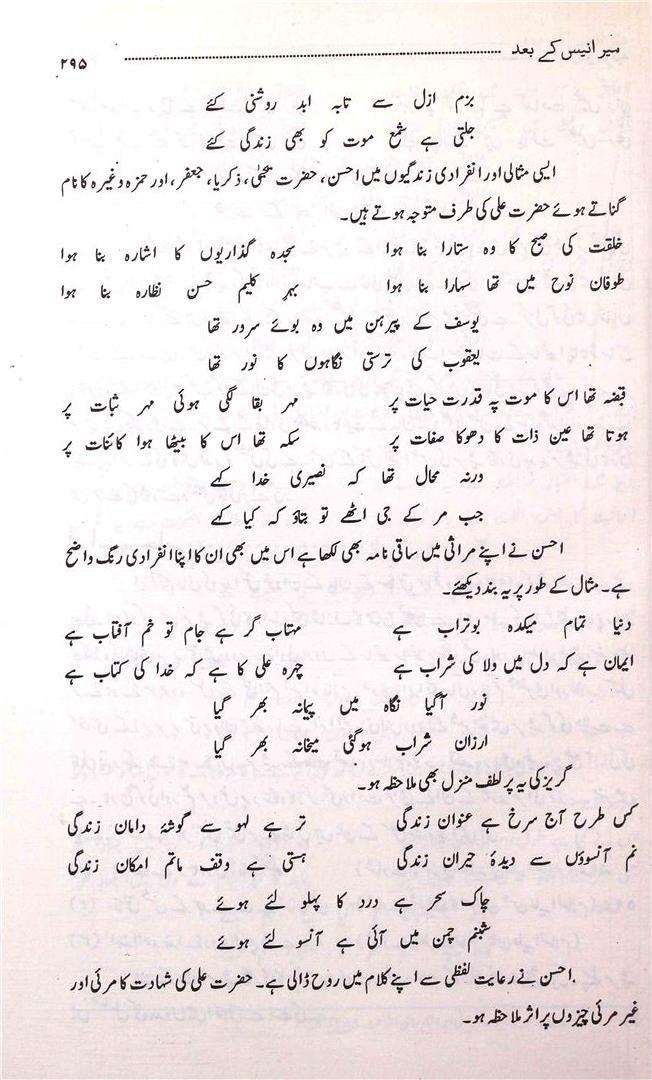 میر انیس کے بعد ۲۹۵
بزم ازل سے تابہ ابد روشنی کئے
جلتی ہے شمع موت کو بھی زندگی کئے
ایسی مثالی اور انفرادی زندگیوں میں احسن، حضرت یحییٰ، ذکریا، جعفر، اور حمزہ وغیرہ کا نام
گناتے ہوئے حضرت علی کی طرف متوجہ ہوتے ہیں۔
خلقت کی صبح کا وہ ستارا بنا ہوا سجدہ گذاریوں کا اشارہ بنا ہوا
طوفان نوح میں تھا سہارا بنا ہوا بہرِ کلیم حسن نظارہ بنا ہوا
یوسف کے پیرہن میں وہ بوئے سرور تھا
یعقوب کی ترستی نگاہوں کا نور تھا
قبضہ تھا اس کا موت پہ قدرت حیات پر مہر بقا لگی ہوئی مہر ثبات پر
ہوتا تھا عین ذات کا دھوکا صفات پر سکہ تھا اس کا بیٹھا ہوا کائنات پر
ورنہ محال تھا کہ نصیری خدا کہے
جب مر کے جی اٹھے تو بتاؤ کہ کیا کہے
احسن نے اپنے مراثی میں ساقی نامہ بھی لکھا ہے اس میں بھی ان کا اپنا انفرادی رنگ واضح
ہے۔ مثال کے طور پر یہ بند دیکھئے۔
دنیا تمام میکدہ بوتراب ہے مہتاب گر ہے جام تو خم آفتاب ہے
ایمان ہے کہ دل میں ولا کی شراب ہے چہرہ علی کا ہے کہ خدا کی کتاب ہے
نور آگیا نگاہ میں پیمانہ بھر گیا
ارزان شراب ہوگئی میخانہ بھر گیا
گریز کی یہ پر لطف منزل بھی ملاحظہ ہو۔
کس طرح آج سرخ ہے عنوان زندگی تر ہے لہو سے گوشۂ دامان زندگی
نم آنسوؤں سے دیدۂ حیران زندگی ہستی ہے وقف ماتم امکان زندگی
چاک سحر ہے درد کا پہلو لئے ہوئے
شبنم چمن میں آئی ہے آنسو لئے ہوئے
احسن نے رعایت لفظی سے اپنے کلام میں روح ڈالی ہے۔ حضرت علی کی شہادت کا مرئی اور
غیر مرئی چیزوں پر اثر ملاحظہ ہو۔